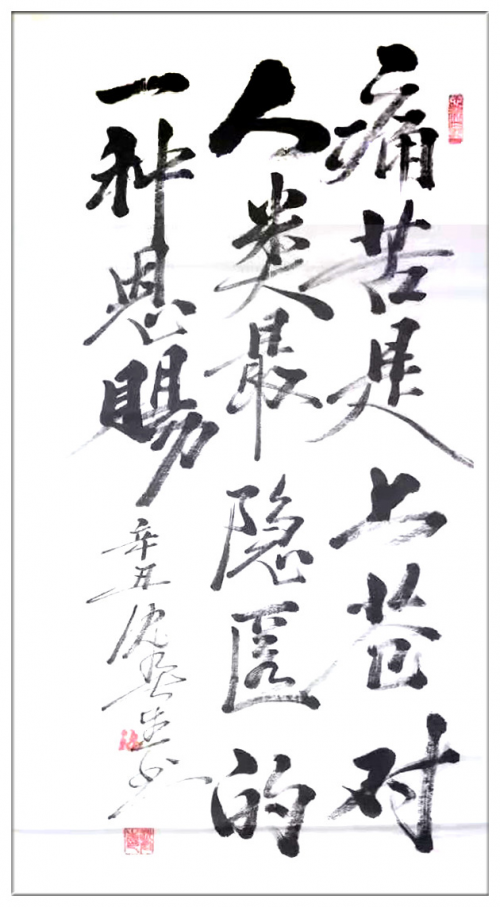 痛苦是上苍对
人类最隐匿的
一种恩赐
辛丑沈